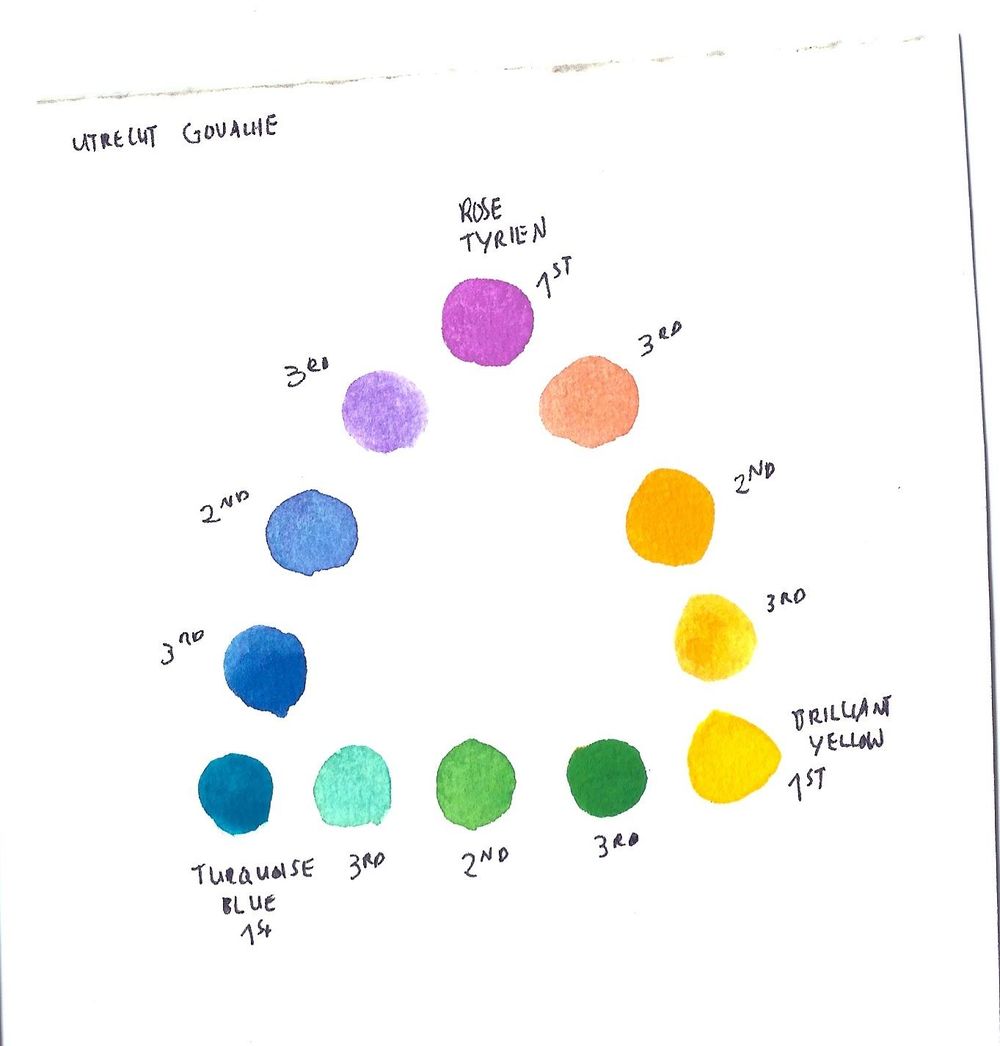 UTRECHT GOUACHE
ROSE
TYRIEN
1ST
3RD
3RD
2ND
2ND
3RD
3RD
BRILLIANT
YELLOW
1ST
3RD
TURQUOISE
BLUE
1st
3RD
2ND